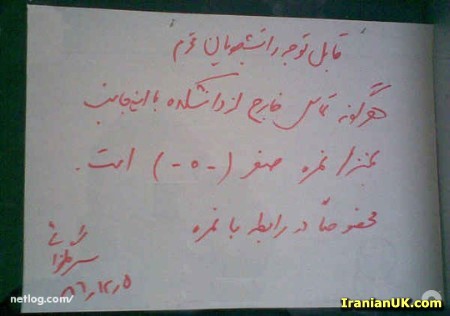 قابل توجه دانشجویان محترم
هرگونه تماس خارج از دانشکده با اینجانب
بمنزله نمره صفر (-۰-) است.
مخصوصاً در رابطه با نمره
۸۶,۱۲,۵
netlog.com/
IranianUK.com